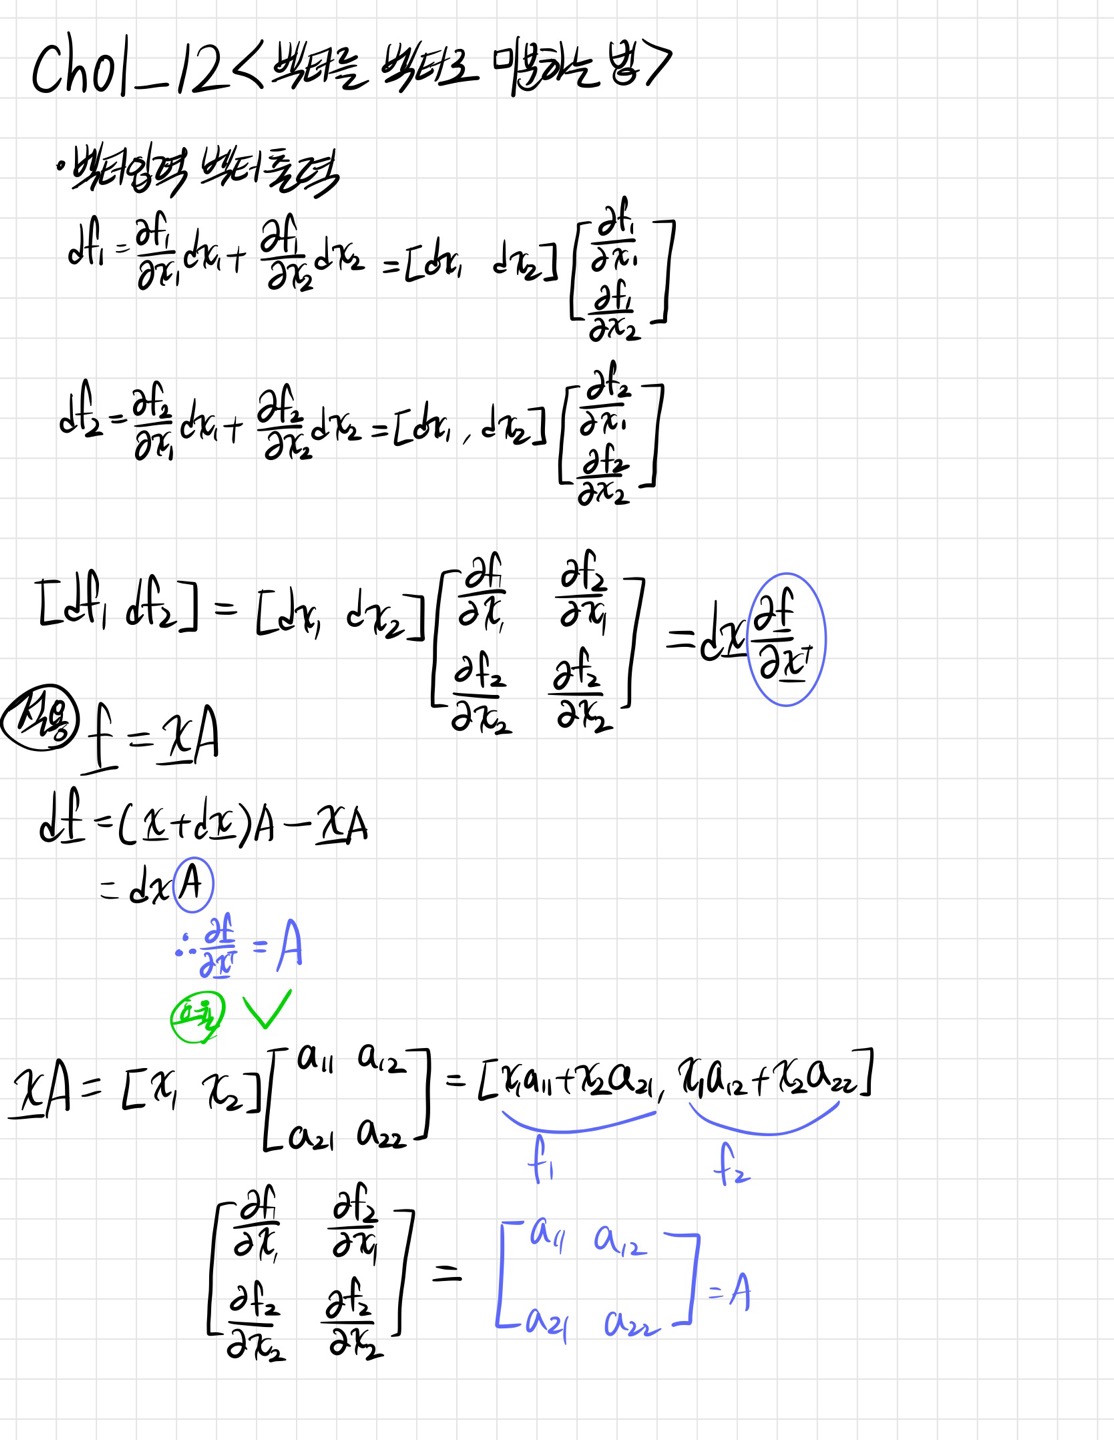 Ch01_12<벡터를 벡터로 미분하는 법>
·벡터입력 벡터출력
df₁ = ∂f₁/∂x₁ dx₁ + ∂f₁/∂x₂ dx₂ = [dx₁ dx₂] [∂f₁/∂x₁ ; ∂f₁/∂x₂]
df₂ = ∂f₂/∂x₁ dx₁ + ∂f₂/∂x₂ dx₂ = [dx₁, dx₂] [∂f₂/∂x₁ ; ∂f₂/∂x₂]
[df₁ df₂] = [dx₁ dx₂] [∂f₁/∂x₁ ∂f₂/∂x₁ ; ∂f₂/∂x₂ ∂f₂/∂x₂] = dx ∂f/∂xᵀ
적용 f = xA
df = (x+dx)A - xA
= dxA
∴ ∂f/∂xᵀ = A
∨
xA = [x₁ x₂] [a₁₁ a₁₂ ; a₂₁ a₂₂] = [x₁a₁₁+x₂a₂₁, x₁a₁₂+x₂a₂₂]
f₁ f₂
[∂f₁/∂x₁ ∂f₂/∂x₁ ; ∂f₂/∂x₂ ∂f₂/∂x₂] = [a₁₁ a₁₂ ; a₂₁ a₂₂] = A